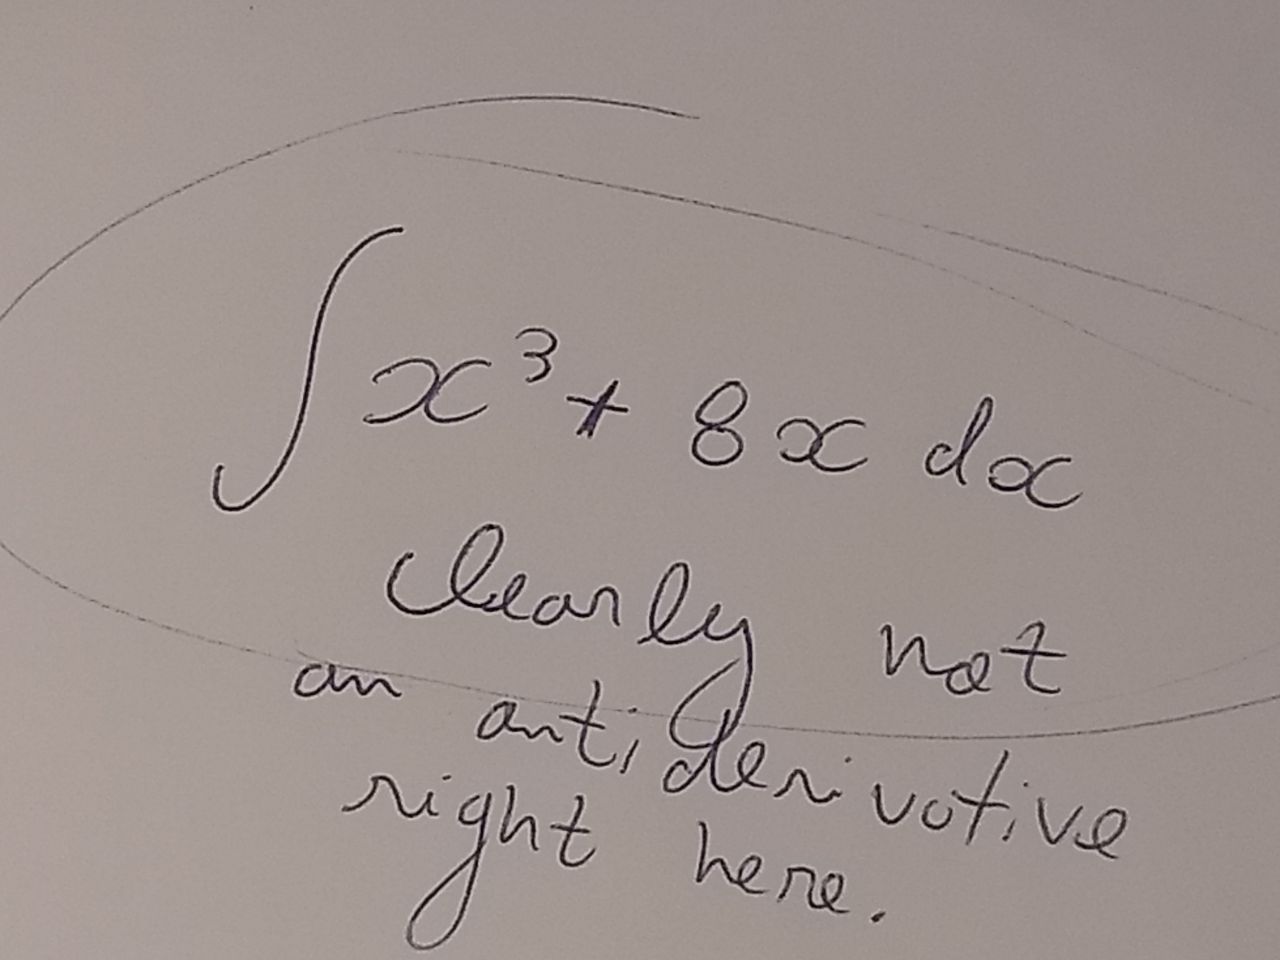 ∫ x³ + 8x dx
Clearly not
an antiderivative
right here.